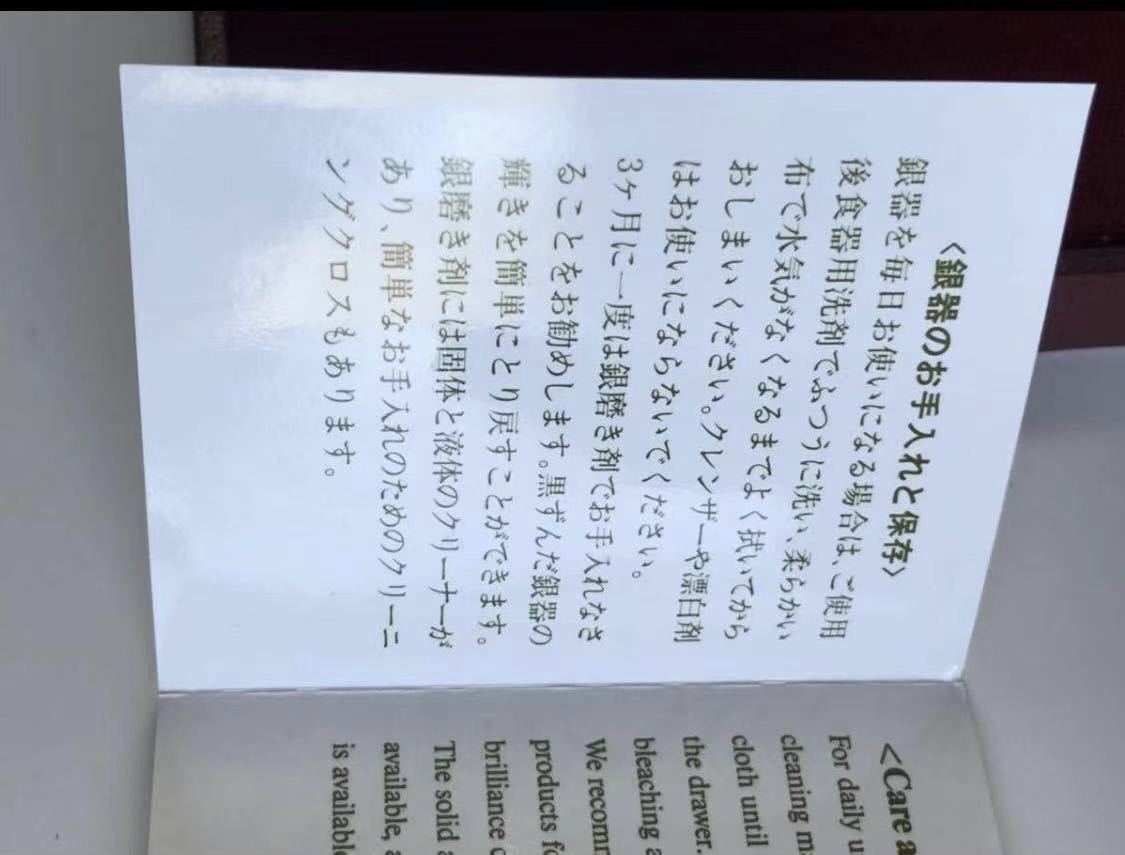 〈銀器のお手入れと保存〉
銀器を毎日お使いになる場合は、ご使用
後食器用洗剤でふつうに洗い、柔らかい
布で水気がなくなるまでよく拭いてから
おしまいください。クレンザーや漂白剤
はお使いにならないでください。
3ヶ月に一度は銀磨き剤でお手入れなさ
ることをお勧めします。黒ずんだ銀器の
輝きを簡単にとり戻すことができます。
銀磨き剤には固体と液体のクリーナーが
あり、簡単なお手入れのためのクリーニ
ングクロスもあります。
<Care a
For daily u
cleaning ma
cloth until
the drawer.
bleaching a
We recomm
products fo
brilliance o
The solid a
available, a
is available